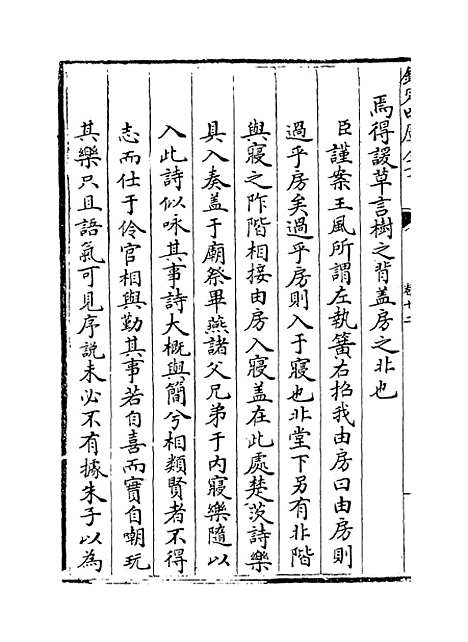 焉得諼草言樹之背盖房之北也
臣謹案王風所謂左執簧右招我由房曰由房則
過乎房矣過乎房則入于寢也非堂下另有北階
與寢之阼階相接由房入寢盖在此處楚茨詩樂
具入奏盖于廟祭畢燕諸父兄弟于内寢樂隨以
入此詩似咏其事詩大概與簡兮相類賢者不得
志而仕于伶官相與勤其事若自喜而實自嘲玩
其樂只且語氣可見序説未必不有據朱子以為